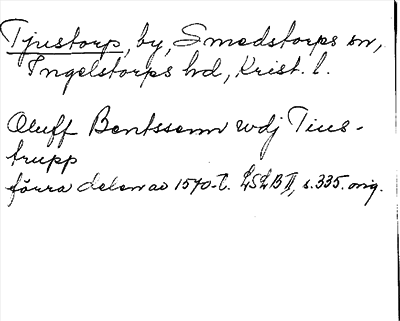 Tjustorp, by, Smedstorps sn,
Ingelstorps hd, Krist. l.
Oluff Bentssenn wdj Tius-
trupp
förra delen av 1570-t. LSLB II, s. 335. orig.